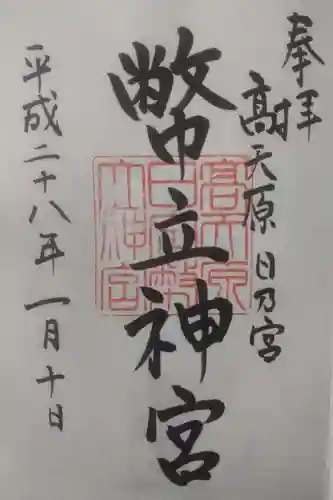 奉拝
高天原 日乃宮
幣立神宮
平成二十八年一月十日